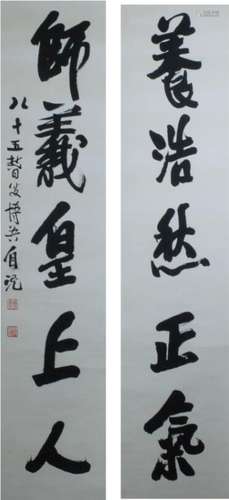 養浩然正氣
師義皇上人
八十五瞽叟